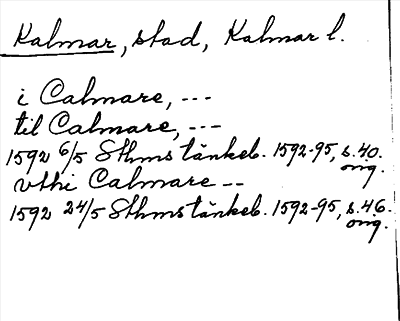 Kalmar, stad, Kalmar l.
i Calmare, ---
til Calmare, ---
1592 6/5 Sthms tänkeb. 1592-95, s.40.
orig.
vthi Calmare --
1592 24/5 Sthms tänkeb. 1592-95, s.46.
orig.